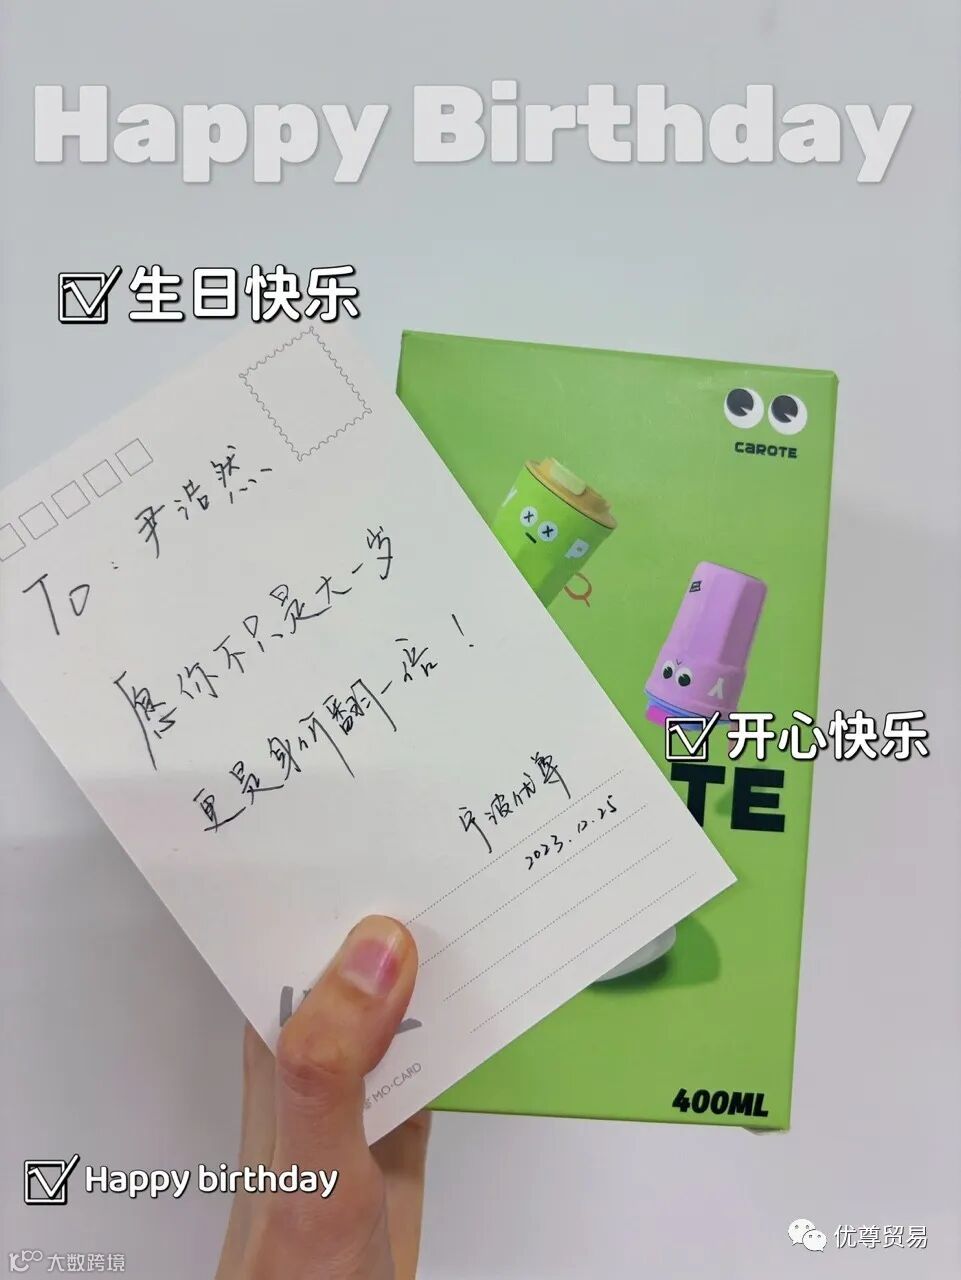 Happy Birthday
生日快乐
CAROTE
To：尹浩然
愿你不只是大一岁
更是身价翻一倍！
开心快乐
TE
宁波优尊
2023.12.25
MO·CARD
400ML
Happy birthday
优尊贸易
大数跨境